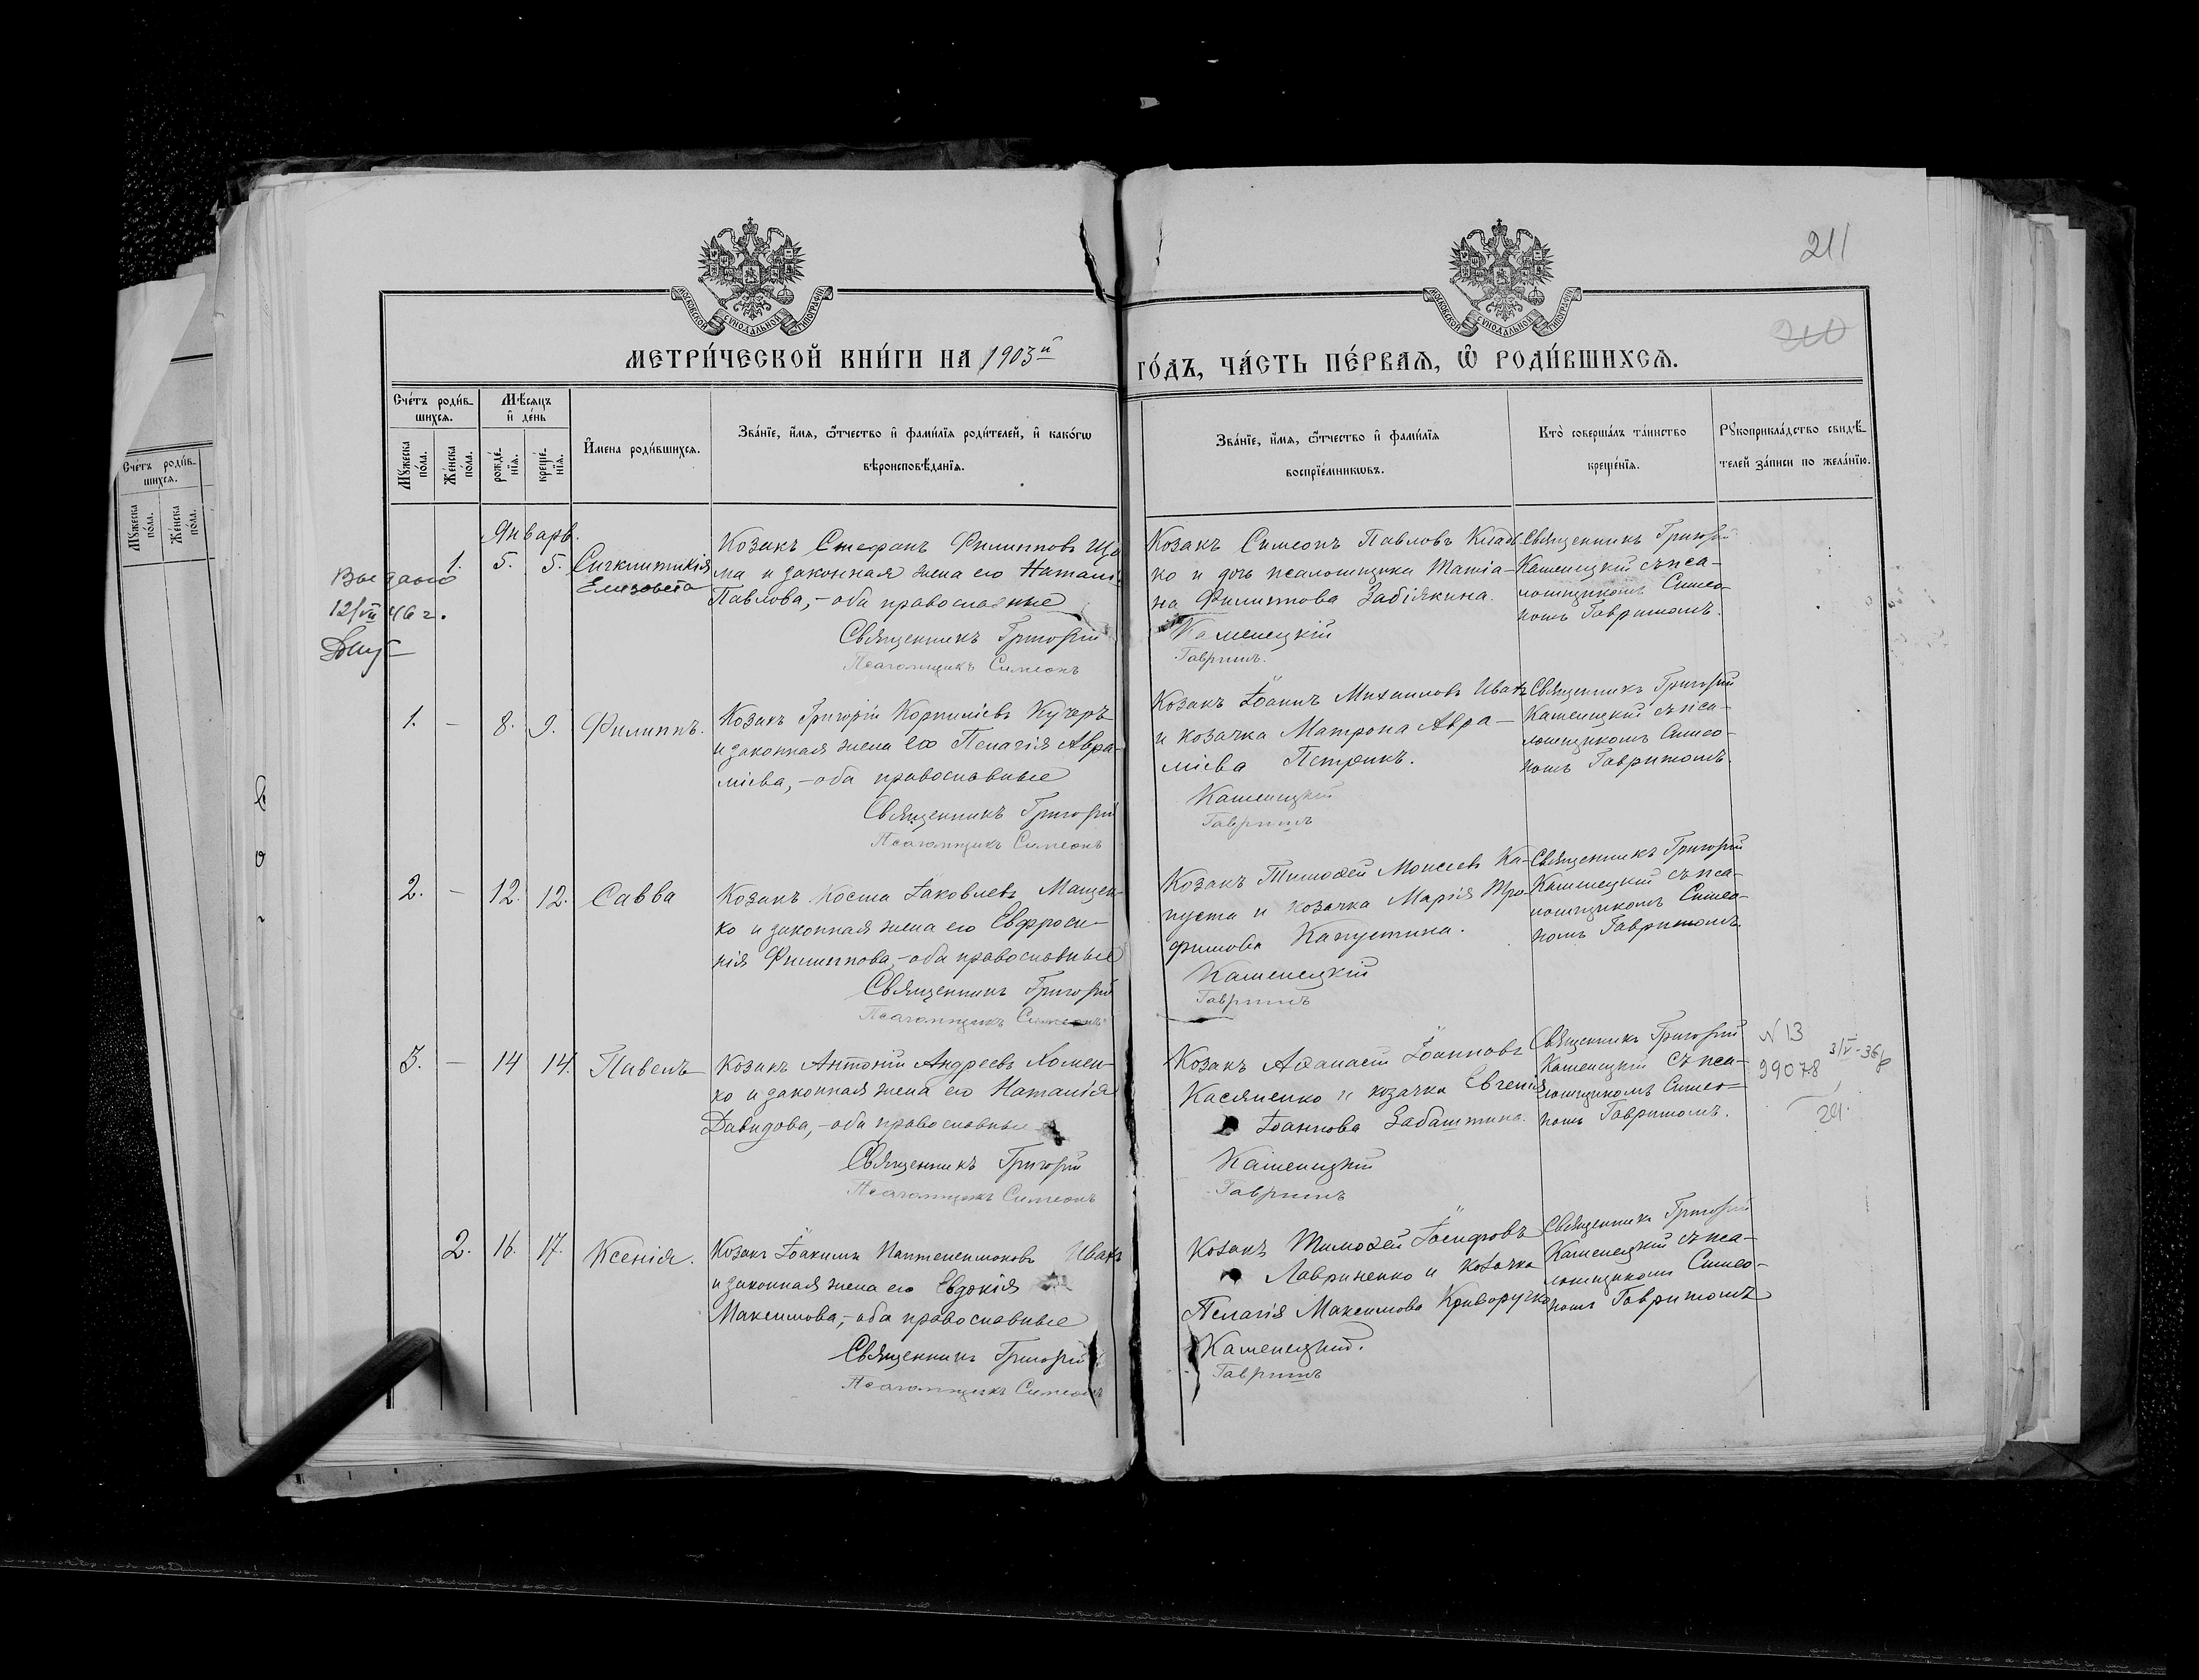 211
210
МОСКОВСКОЙ СѴНОДАЛЬНОЙ ТИПОГРАФІИ
МОСКОВСКОЙ СѴНОДАЛЬНОЙ ТИПОГРАФІИ
МЕТРИ́ЧЕСКОЙ КНИ́ГИ НА 1903й
ГО́ДЪ, ЧА́СТЬ ПЕ́РВАѦ, Ѿ РОДИ́ВШИХСѦ.
Сче́тъ роди́в-
шихсѧ.
Мѣ́сѧцъ
и҆ де́нь
Мꙋ́жеска
по́ла.
Же́нска
по́ла.
рожде́-
нїѧ.
креще́-
нїѧ.
И҆мена роди́вшихсѧ.
Зва́нїе, и҆́мѧ, ѻ҆́тчество и҆ фами́лїѧ роди́телей, и҆ како́гѡ
вѣроисповѣ́данїѧ.
Зва́нїе, и҆́мѧ, ѻ҆́тчество и҆ фами́лїѧ
воспрїе́мникѡвъ.
Кто̀ соверша́лъ та́инство
креще́нїѧ.
Рꙋкоприкла́дство свидѣ́-
телей за́писи по жела́нїю.
Сче́тъ роди́в-
шихсѧ.
Мꙋ́жеска
по́ла.
Же́нска
по́ла.
Январь.
1. 5. 5. Сигклитикія
Елизовета
Выдано
12/VII 46 г.
Козакъ Стефанъ Филипповъ
ма и законная жена его Наталі
Павлова,- оба православные
Священникъ Григорій
Псаломщикъ Симеонъ
Козакъ Симеонъ Павловъ
ко и дочь псаломщика Татіа-
на Филиппова Забіякина.
Каменецкій
Гавришъ.
Священникъ Григорій
Каменецкій съ пса-
ломщикомъ Симео-
номъ Гавришомъ.
1. - 8. 9. Филиппъ.
Козакъ Григорій Корниліевъ Кучеръ
и законная жена его Пелагія Авра-
міева,- оба православные
Священникъ Григорій
Псаломщикъ Симеонъ
Козакъ Іоаннъ Михаиловъ Ивахъ
и козачка Матрона Авра-
міева Петрикъ.
Каменецкій
Гавришъ
Священникъ Григорій
Каменецкій съ пса-
ломщикомъ Симео-
номъ Гавришомъ.
2. - 12. 12. Савва
Козакъ Косма Іаковлевъ Мащен-
ко и законная жена его Евфроси-
нія Филиппова,- оба православные
Священникъ Григорій
Псаломщикъ Симеонъ
Козакъ Тимоѳей Моисеевъ Ка-
пуста и козачка Марія Тро-
фимова Капустина.
Каменецкій
Гавришъ
Священникъ Григорій
Каменецкій съ пса-
ломщикомъ Симео-
номъ Гавришомъ.
3. - 14 14. Павелъ
Козакъ Антоній Андреевъ Хомен-
ко и законная жена его Наталія
Давидова,- оба православные
Священникъ Григорій
Псаломщикъ Симеонъ
Козакъ Аѳанасій Іоанновъ
Касяненко и козачка Евгенія
Іоаннова Забаштина.
Каменецкій
Гавришъ
Священникъ Григорій
Каменецкій съ пса-
ломщикомъ Симео-
номъ Гавришомъ.
N 13
99078
3/V-36
2. 16. 17. Ксенія.
Козакъ Іоакимъ Пантелеимоновъ Ивахъ
и законная жена его Евдокія
Максимова,- оба православные
Священникъ Григорій
Псаломщикъ Симеонъ
Козакъ Тимоѳей Іосифовъ
Лавриненко и козачка
Пелагія Максимова Криворучко
Каменецкій.
Гавришъ
Священникъ Григорій
Каменецкій съ пса-
ломщикомъ Симео-
номъ Гавришомъ